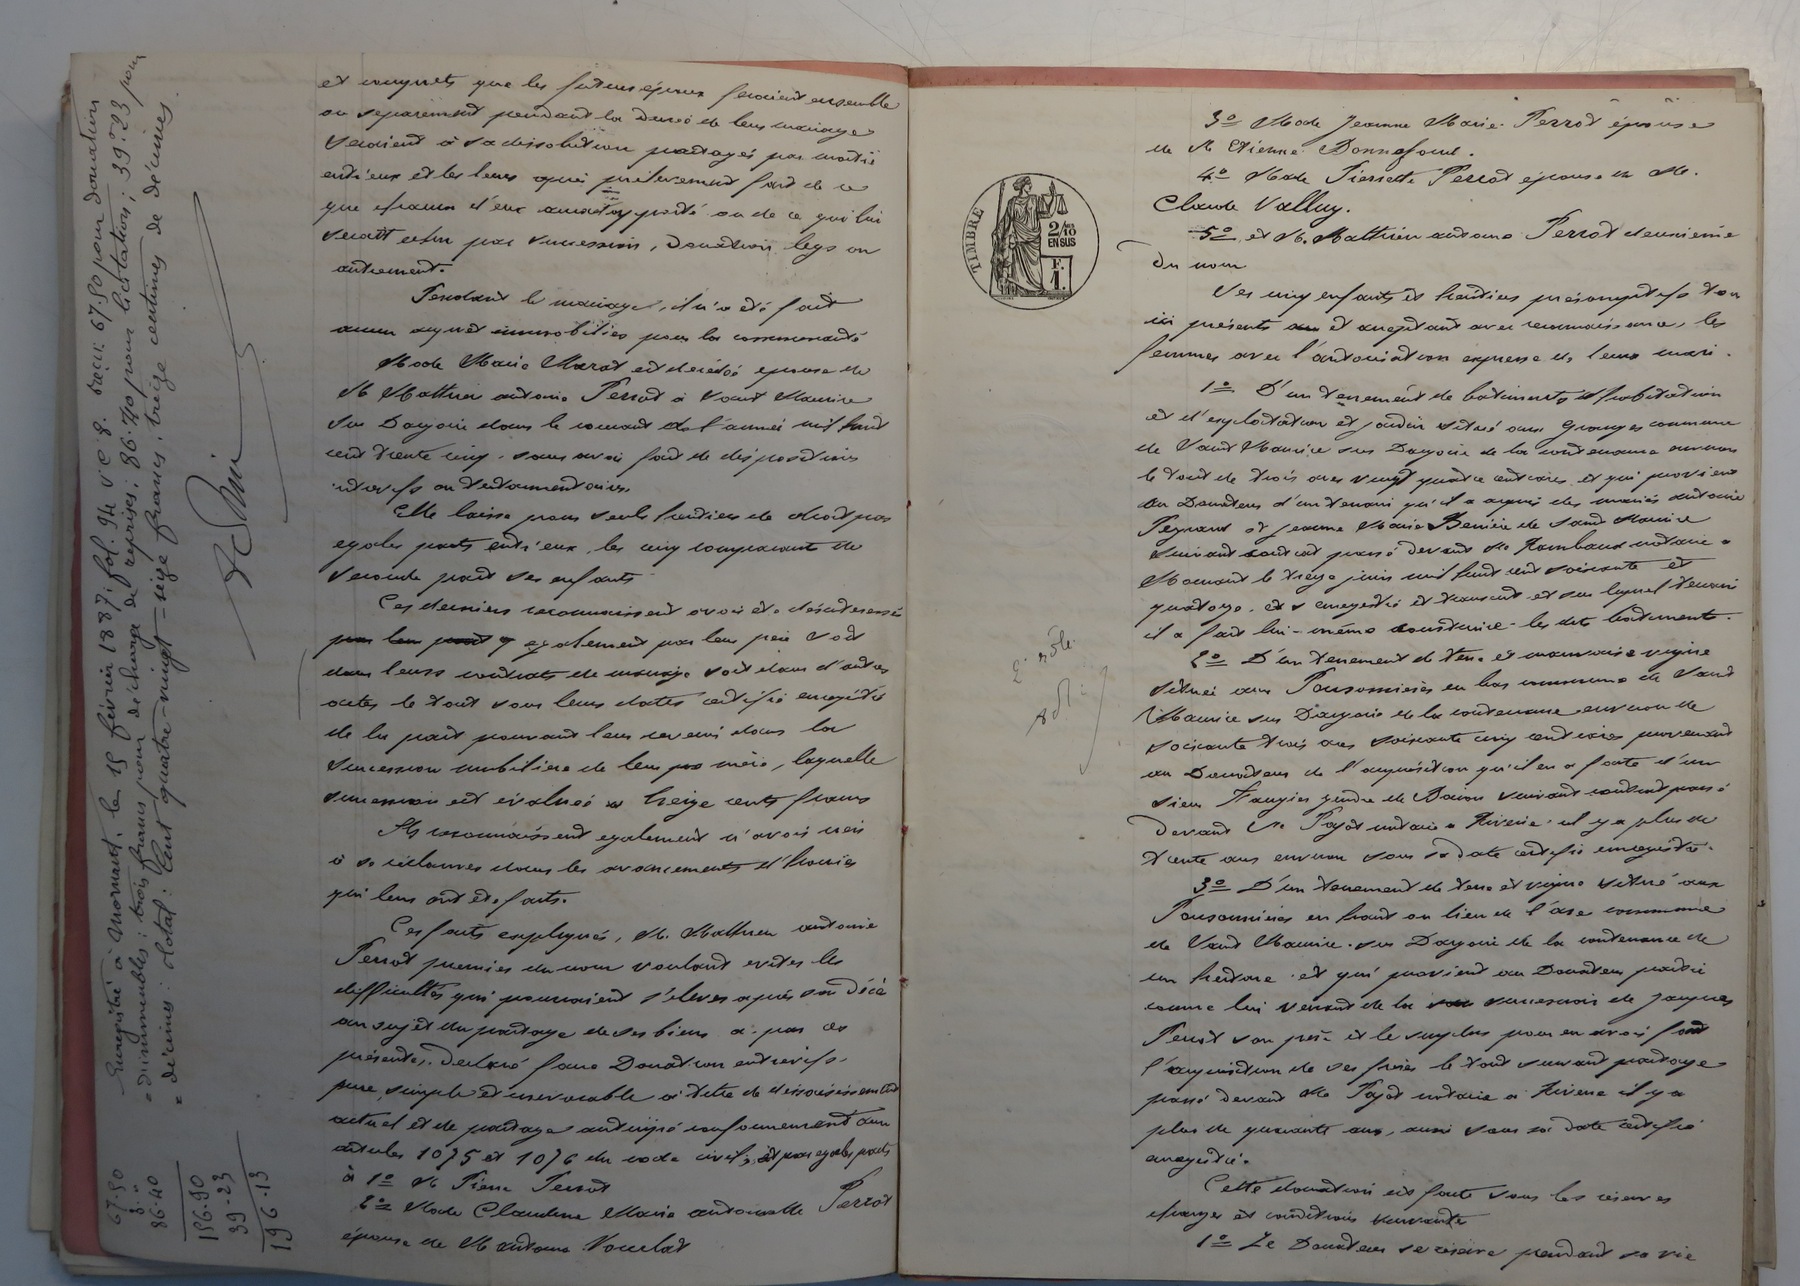 Enregistré à Mornant, le 15 février 1887, fol. 94 v° c. 8. Reçu: 67.50 pour donation
d'immeubles; trois francs pour décharge de reprises; 86.40 pour licitation; 39.23 pour
décimes: Total: Cent quatre-vingt-seize francs, treize centimes de décimes.
67.50
3. "
86.40
156.90
39.23
196.13
et conquets que les futurs époux feraient ensemble
ou séparément pendant la durée de leur mariage
seraient à sa dissolution partagés par moitié
entr'eux et les leurs après prélèvement fait de ce
que chacun d'eux aurait apporté ou de ce qui lui
serait échu par succession, donation legs ou
autrement.
Pendant le mariage, il n'a été fait
aucun acquet immobilier pour la communauté
Made Marie Marat est décédée épouse de
M Mathieu antoine Perrot à Saint Maurice
Sur Dargoire dans le courant de l'année mil huit
cent trente cinq, sans avoir fait de dispositions
entrevifs ou testamentaires.
Elle laisse pour seuls héritiers de droit par
egales parts entr'eux, les cinq comparants de
seconde part ses enfants
Ces derniers reconnaissent avoir été désintéressés
par leur part egalement par leur père soit
dans leurs contrats de mariage soit dans d'autres
actes le tout sous leurs dates certifié enregistré
de la part pouvant leur revenir dans la
succession mobilière de leur mère, laquelle
succession est évaluée à treize cents francs
Ils reconnaissent egalement n'avoir rien
à se réclamer dans les avancements d'hoirie
qui leur ont été faits.
Ces faits expliqués, M. Mathieu antoine
Perrot premier du nom voulant eviter les
difficultés qui pourraient s'élever après son décè
au sujet du partage de ses biens a par ces
présentes, déclaré faire Donation entrevifs
pure, simple et irrevocable à titre de dessaisissement
actuel et de partage anticipé conformement aux
articles 1075 et 1076 du code civil, et par egales parts
à 1º M Pierre Perrot
2º Made Claudine Marie antoinette Perrot
épouse de M antoine Vouclat
TIMBRE
2/10
EN SUS
F.
1.
2e rôle
3º Made Jeanne Marie Perrot épouse
de M Etienne Bonnefond.
4º Made Pierrette Perrot épouse de M.
Claude Valluy.
5º et M. Mathieu antoine Perrot deuxième
du nom
Ses cinq enfants et héritiers présomptifs tous
ici présents et acceptant avec reconnaissance, les
femmes avec l'autorisation expresse de leur mari.
1º D'un tenement de batiments d'habitation
et d'exploitation et jardin situé aux Granges commune
de Saint Maurice sur Dargoire de la contenance environ
le tout de trois ares vingt quatre centiares et qui provient
au Donateur d'un terrain qu'il a acquis des mariés antoine
Peyrard et Jeanne Marie Benière de Saint Maurice
suivant contrat passé devant Me Rambaux notaire à
Mornant le treize juin mil huit cent soixante et
quatorze, et enregistré et transcrit et sur lequel terrain
il a fait lui-même construire les dits batiments.
2º D'un tenement de terre et mauvaise vigne
située aux Poisonnières en bas commune de Saint
Maurice sur Dargoire de la contenance environ de
soixante trois ares soixante cinq centiares provenant
au Donateur de l'acquisition qu'il en a faite d'un
sieur Faugier gendre de Bairon suivant contrat passé
devant Me Pajot notaire à Riverie il y a plus de
trente ans environ sous sa date certifié enregistré.
3º D'un tenement de terre et vigne situé aux
Poisonnières en haut au lieu de l'are commune
de Saint Maurice sur Dargoire de la contenance de
un hectare et qui provient au Donateur partie
comme lui venant de la succession de Jacques
Perrot son père et le surplus pour en avoir fait
l'acquisition de ses frères le tout suivant partage
passé devant Me Pajot notaire à Riverie il y a
plus de quarante ans, aussi sous sa date certifié
enregistré.
Cette donation est faite sous les réserves
charges et conditions suivantes
1º Le Donateur se réserve pendant sa vie